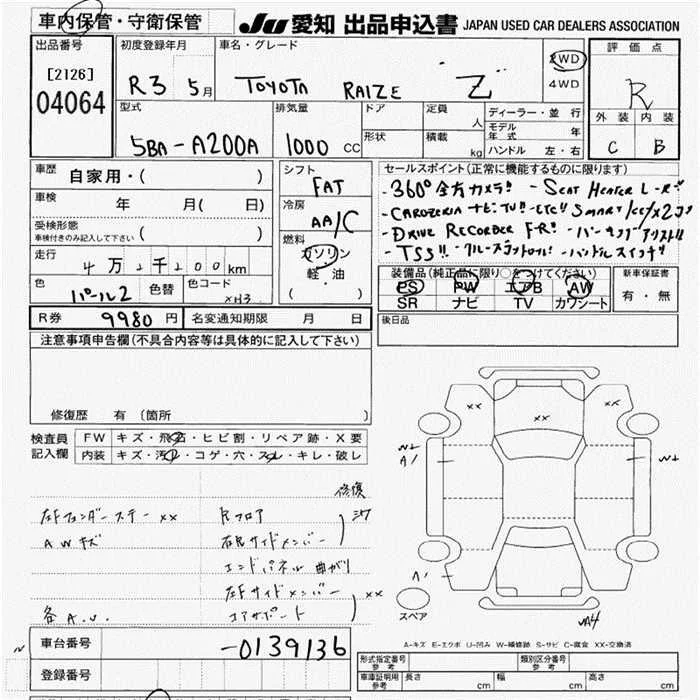 車内保管・守衛保管
JU 愛知 出品申込書 JAPAN USED CAR DEALERS ASSOCIATION
出品番号
[2126]
04064
初度登録年月
R3 5月
車名・グレード
TOYOTA RAIZE "Z"
2WD
4WD
評価点
R
外装 内装
C B
型式
5BA-A200A
排気量
1000 CC
ドア
形状
定員 人
積載 kg
ディーラー・並行
モデル年式 年
ハンドル 左・右
車歴 自家用・( )
車検 年 月( 日)
受検形態
車検付きのみ記入して下さい ( )
走行 4万2千200km
色 パール2 色替 色コード
シフト
FAT
冷房
AA/C
燃料
ガソリン
軽油
( )
セールスポイント(正常に機能するものに限ります)
-360°全方カメラ!! -SEAT HEATER L-R!!
-CAROZZERIA ナビ・TV!! -ETC!!
-DRIVE RECORDER F-R!
-TSS!!
装備品(純正品に限り○をつけてください)
PS PW エアB AW
SR ナビ TV カワシート
新車保証書
有・無
R券 9980円 名変通知期限 月 日
後日品
注意事項申告欄(不具合内容等は具体的に記入して下さい)
修復歴 有 (箇所 )
検査員記入欄
FW キズ・飛石・ヒビ割・リペア跡・X要
内装 キズ・汚レ・コゲ・穴・スレ・キレ・破レ
修復
左Fフェンダーステー xx
AWキズ
Rフロア
右Rサイドメンバー
エンドパネル 曲がり
左Fサイドメンバー
コアサポート xx
各A.U.
xx
xx
xx
A1
A1
スペア
A-キズ E-エクボ U-凹み W-補修跡 S-サビ C-腐食 XX-交換済
車台番号 -0139136
登録番号
型式指定番号 参考
類別区分番号 参考
車庫証明用 参考 長さ cm 幅 cm 高さ cm